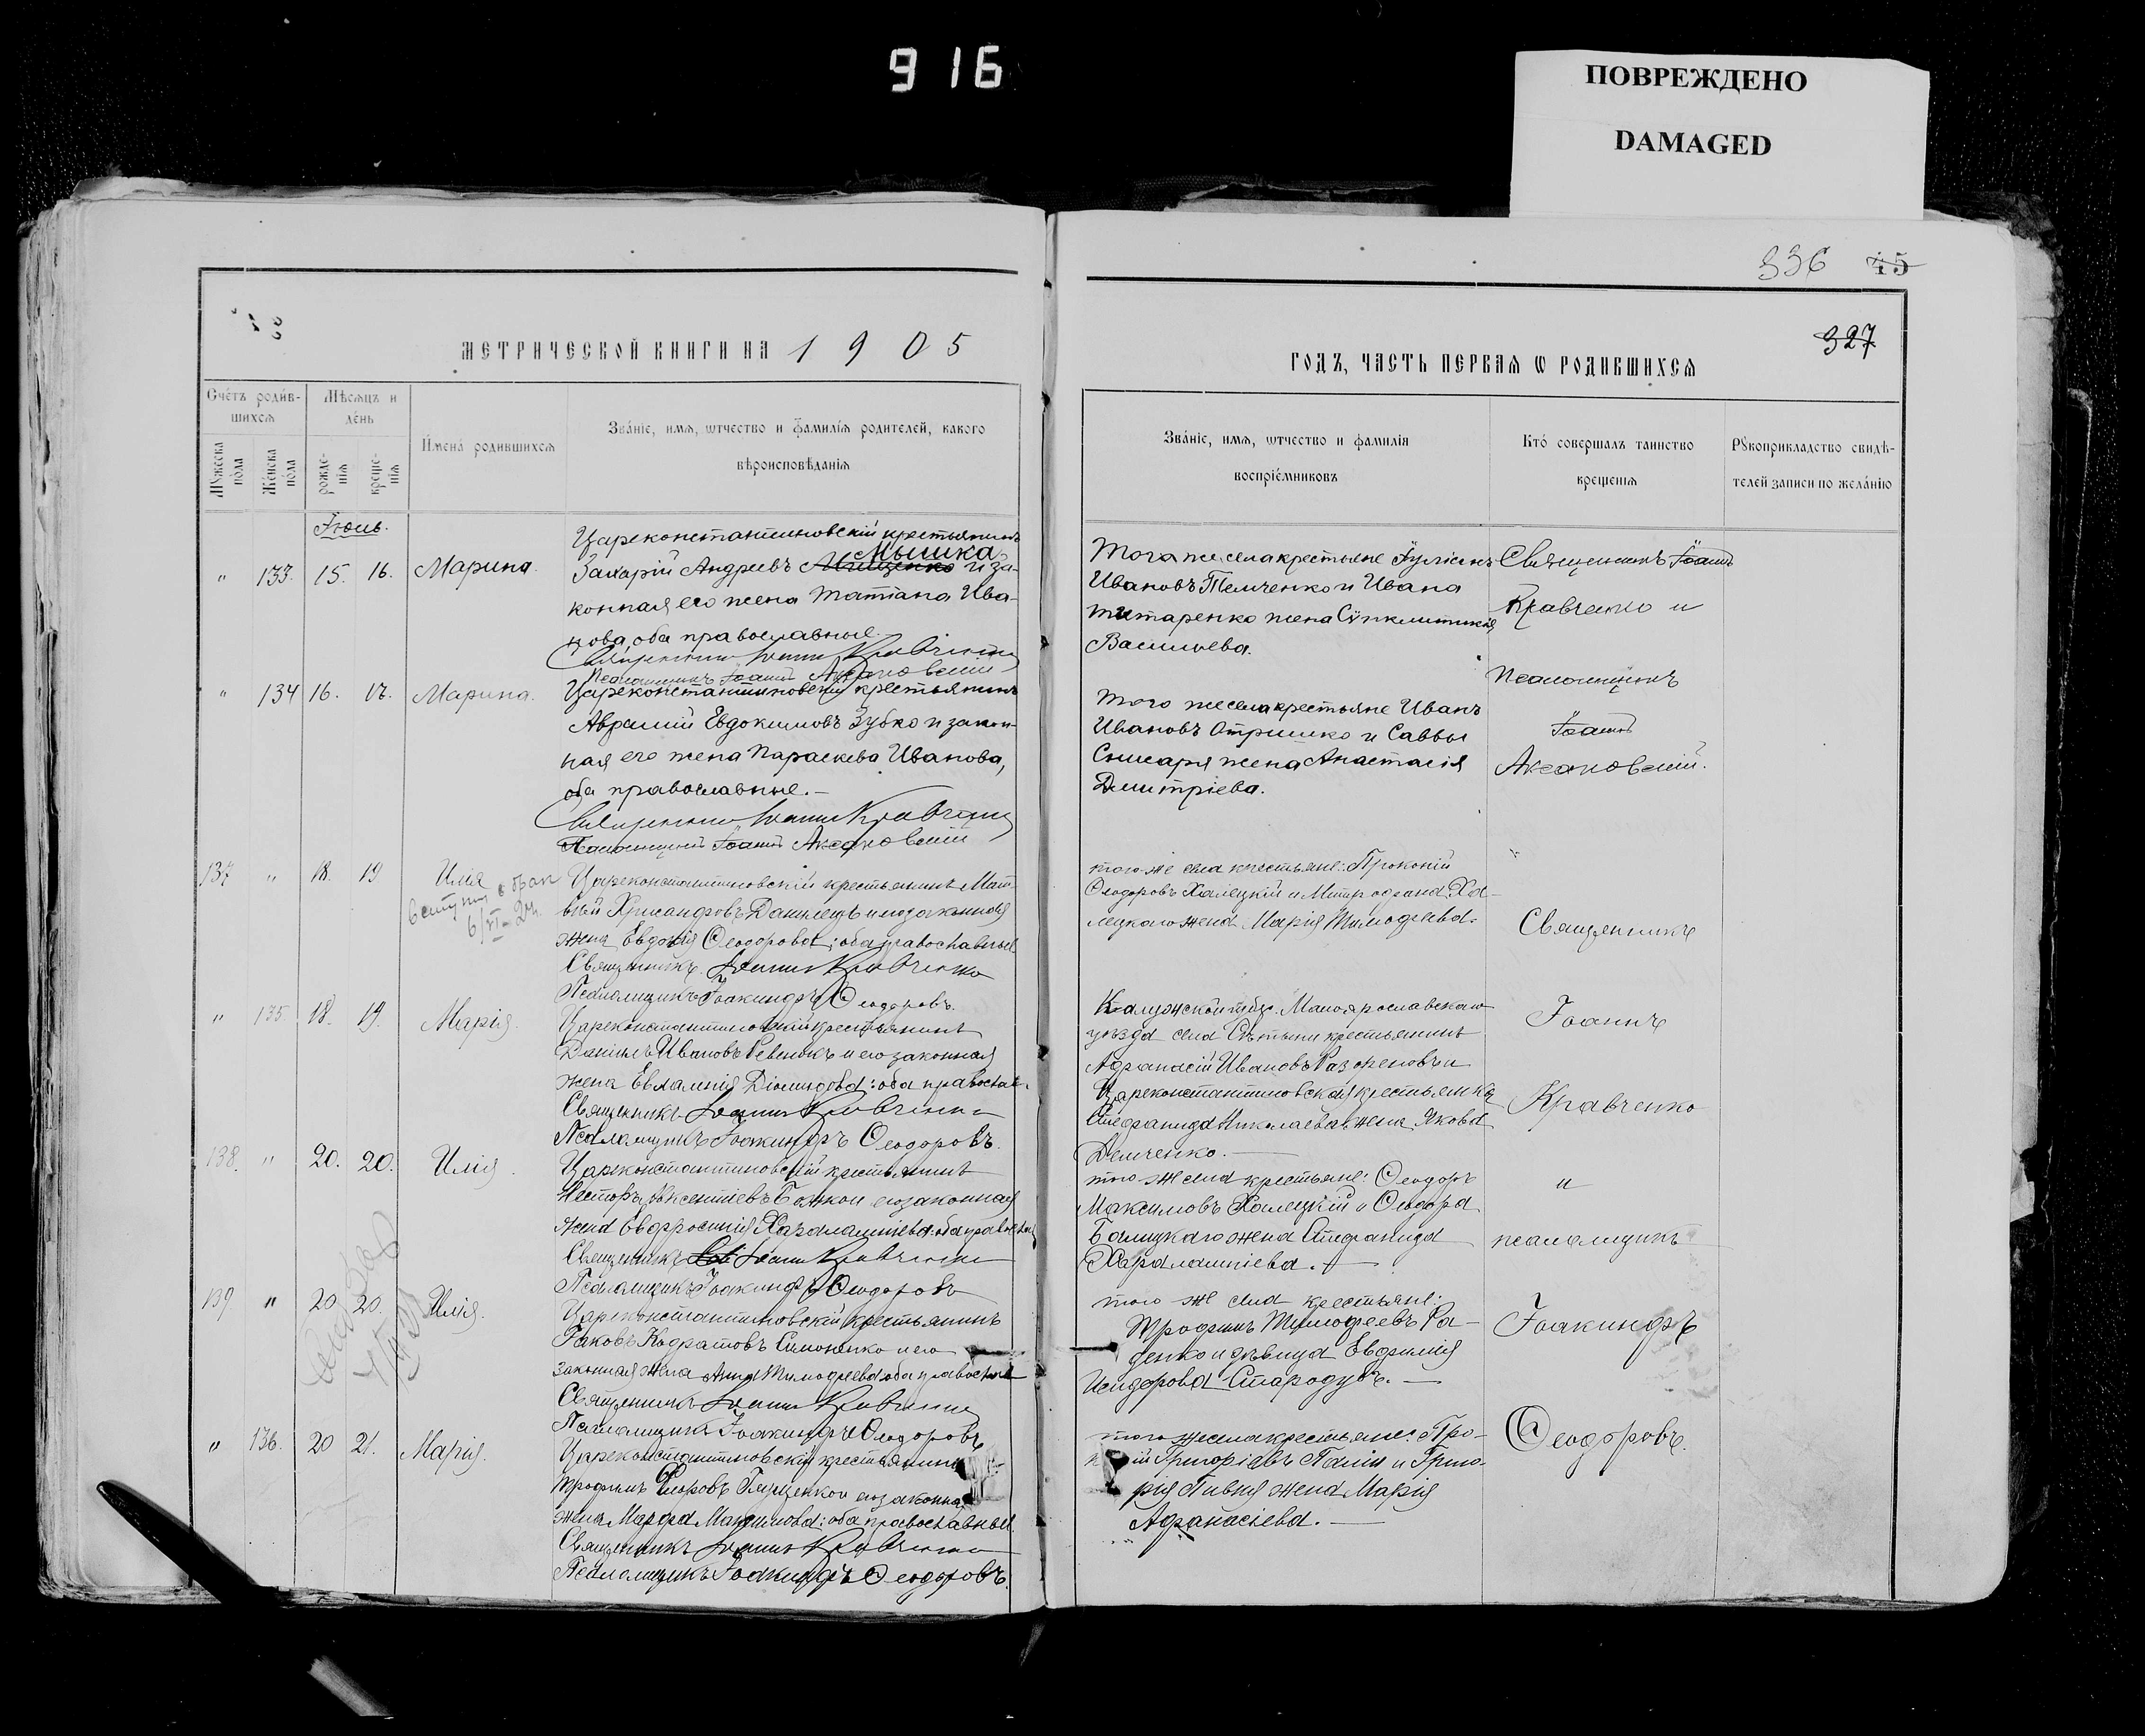 916
ПОВРЕЖДЕНО
DAMAGED
336 45
327
МЕТРИЧЕСКОЙ КНИГИ НА 1905
ГОДЪ, ЧАСТЬ ПЕРВАЯ Ѡ РОДИВШИХСЯ
Счетъ родив-
шихся
Мужеска пола
Женска пола
Мѣсяцъ и
день
рожде-
нія
креще-
нія
Имена родившихся
Званіе, имя, ѡтчество и фамилія родителей, какого
вѣроисповѣданія
Званіе, имя, ѡтчество и фамилія
воспріемниковъ
Кто совершалъ таинство
крещенія
Рукоприкладство свидѣ-
телей записи по желанію
Іюль.
" 133. 15. 16. Марина.
Цареконстантиновскій крестьянинъ
Мышка
Захарій Андреевъ Мищенко и за-
конная его жена Татіана Ива-
нова, оба православные.
Священникъ Іоаннъ Кравченко
Псаломщикъ Іоаннъ Аксановскій
Того же села крестьяне Іуліанъ
Ивановъ Темченко и Ивана
Титаренко жена Сѵнклитикія
Васильева.
Священникъ Іоаннъ
Кравченко и
Псаломщикъ
Іоаннъ
Аксановскій.
" 134 16. 17. Марина.
Цареконстантиновскій крестьянинъ
Аврамій Евдокимовъ Зубко и закон-
ная его жена Параскева Иванова,
оба православные.-
Священникъ Іоаннъ Кравченко
Псаломщикъ Іоаннъ Аксановскій
Того же села крестьяне Иванъ
Ивановъ Отришко и Саввы
Снисаря жена Анастасія
Дмитріева.
137 " 18. 19 Илія
вступил в брак
6/VI-24.
Цареконстантиновскій крестьянинъ Мат-
вѣй Хрисанфовъ Данилецъ и его законная
жена Евдокія Ѳеодорова: оба православные
Священникъ Іоаннъ Кравченко
Псаломщикъ Іоакинфъ Ѳеодоровъ.
того-же села крестьяне: Прокопій
Ѳеодоровъ Халецкій и Митрофана Ха-
лецкаго жена Марія Тимофеева.
Священникъ
" 135 18. 19. Марія.
Цареконстантиновскій крестьянинъ
Даніилъ Ивановъ Ревенокъ и его законная
жена Евлампія Діомидова: оба православ.
Священникъ Іоаннъ Кравченко
Псаломщикъ Іоакинфъ Ѳеодоровъ.
Калужской губ. Малоярославскаго
уѣзда села крестьянинъ
Афанасій Ивановъ и
Цареконстантиновская крестьянка
Стефанида Николаева, жена Якова
Демченко.
Іоаннъ
Кравченко
138. " 20. 20. Илія.
Цареконстантиновскій крестьянинъ
Несторъ Авксентіевъ Божко и его законная
жена Евфросинія Харалампіева: оба православн.
Священникъ Іоаннъ Кравченко
Псаломщикъ Іоакинфъ Ѳеодоровъ
того-же села крестьяне: Ѳеодоръ
Максимовъ Халецкій и Ѳеодора
Балицкаго жена Стефанида
Харалампіева.
и
псаломщикъ
139 " 20 20. Илія.
Цареконстантиновскій крестьянинъ
Іаковъ Кодратовъ Симоненко и его
законная жена Анна Тимофеева: оба православн.
Священникъ Іоаннъ Кравченко
Псаломщикъ Іоакинфъ Ѳеодоровъ
того же села крестьяне:
Трофимъ Тимофеевъ Ра-
денко и дѣвица Евфимія
Исидорова Стародубъ.
Іоакинфъ
" 136. 20 21. Марія.
Цареконстантиновскій крестьянинъ
Трофимъ и его законная
жена Марфа Максимова: оба православные
Священникъ Іоаннъ Кравченко
Псаломщикъ Іоакинфъ Ѳеодоровъ.
того же села крестьяне: Про-
Григоріевъ и Григо-
рія Пивня жена Марія
Афанасіева.
Ѳеодоровъ.